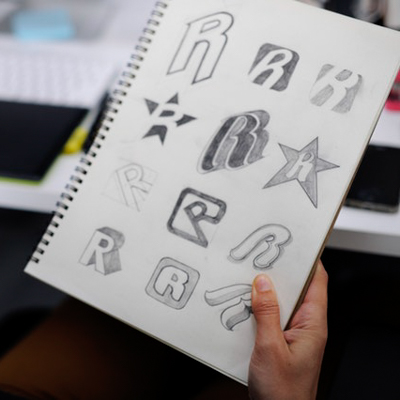 R
R R
R R R
R R R
R R R